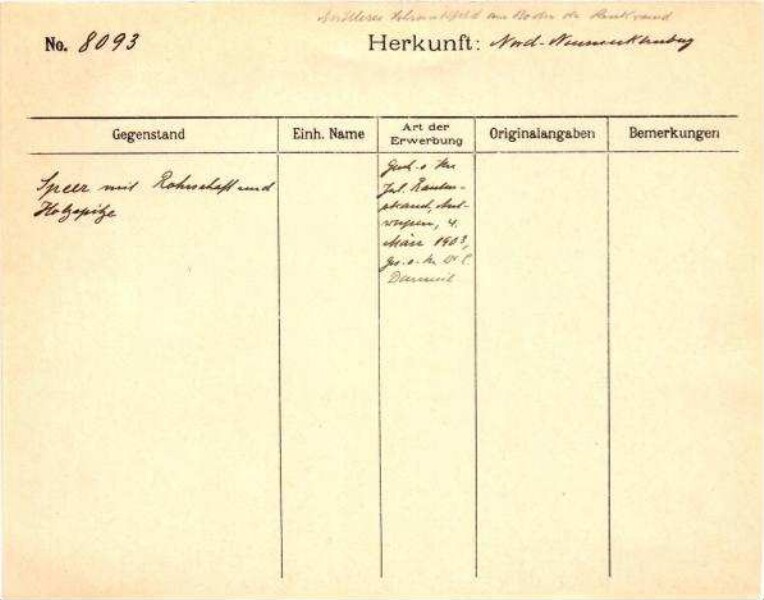 Mittleres am Boden der
No. 8093 Herkunft: Nord-Neumecklenburg
Gegenstand Einh. Name Art der Erwerbung Originalangaben Bemerkungen
Speer mit Rohrschaft und
Holzspitze
Jul. Rauten-
strauch, Ant-
werpen, 4.
März 1903,